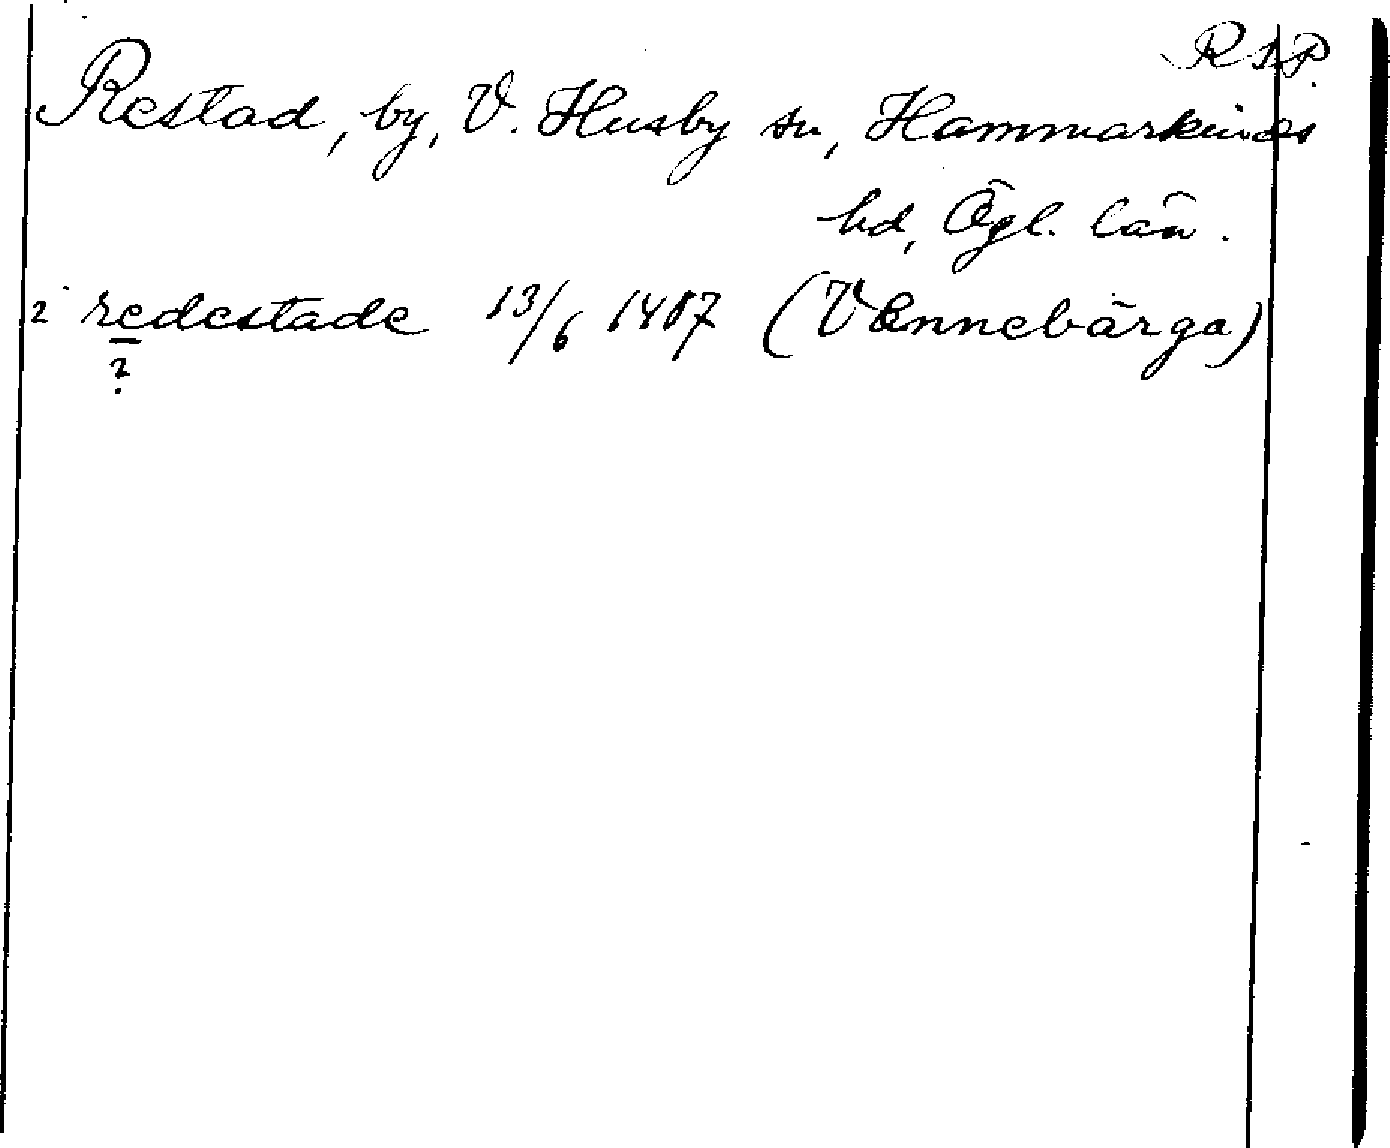 RAP.
Restad, by, V. Husby sn, Hammarkinds
hd, Ögl. län.
i redestade 13/6 1407 (Vennebärga)
?